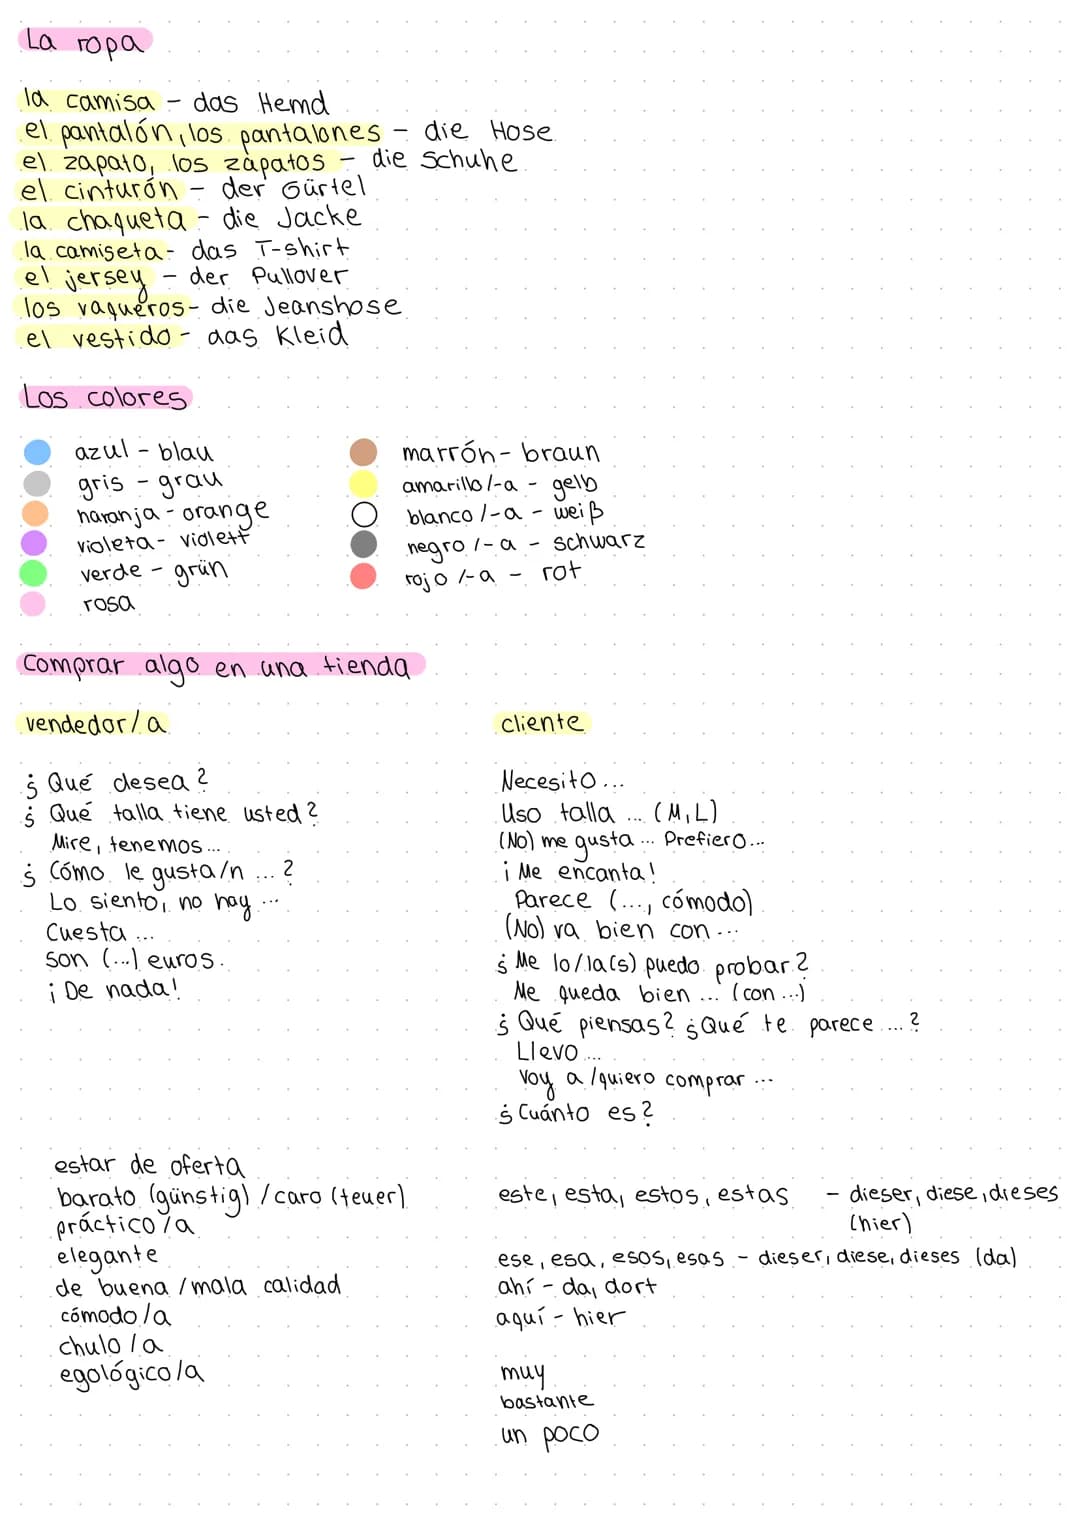 La ropa
la camisa - das Hemd
el pantalón, los pantalones - die Hose
el zapato, los zapatos - die Schuhe
el cinturón - der Gürtel
la chaqueta - die Jacke
la camiseta - das T-shirt
el jersey - der Pullover
los vaqueros - die Jeanshose
el vestido - das Kleid
Los colores
azul - blau
gris - grau
naranja - orange
violeta - violett
verde - grün
rosa
marrón - braun
amarillo/-a - gelb
blanco/-a - weiß
negro/-a - schwarz
rojo/-a - rot
Comprar algo en una tienda
vendedor/a
¿Qué desea?
¿Qué talla tiene usted?
Mire, tenemos...
¿Cómo le gusta/n ...?
Lo siento, no hay ...
Cuesta ...
Son (...) euros.
¡De nada!
cliente
Necesito...
Uso talla ... (M, L)
(No) me gusta ... Prefiero...
¡Me encanta!
Parece (..., cómodo)
(No) va bien con ...
¿Me lo/la(s) puedo probar?
Me queda bien ... (con ...)
¿Qué piensas? ¿Qué te parece ...?
Llevo ...
Voy a/quiero comprar ...
¿Cuánto es?
estar de oferta
barato (günstig) / caro (teuer)
práctico/a
elegante
de buena/mala calidad
cómodo/a
chulo/a
egológico/a
este, esta, estos, estas - dieser, diese, dieses
(hier)
ese, esa, esos, esas - dieser, diese, dieses (da)
ahí - da, dort
aquí - hier
muy
bastante
un poco